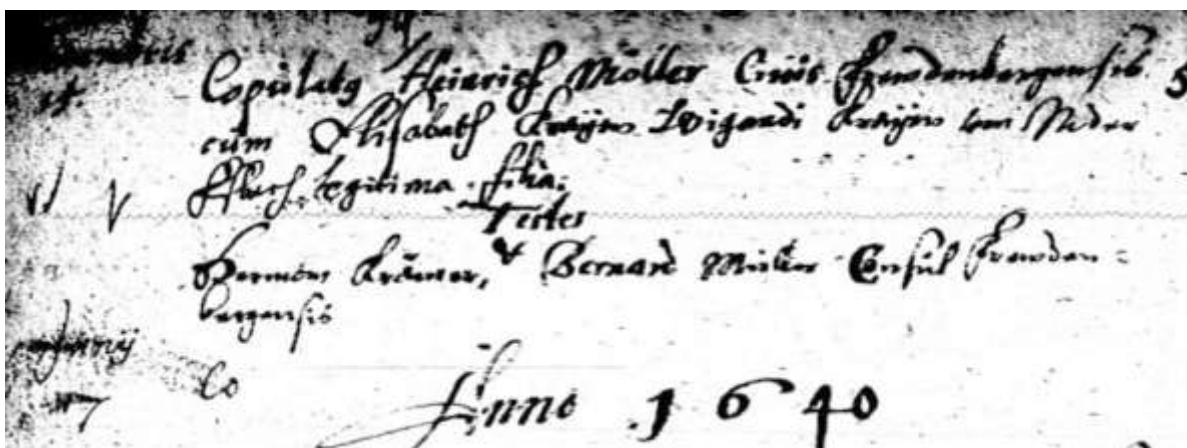 14. Copulatus Heinrich Möller Civis Frewdenbergensis
cum Elisabeth Kraÿin Wigandi Kraÿen von Nider
legitima filia.
Testes
Herman Krämer, & Bernard Müller Consul Frewden=
bergensis
17 Co
Anno 1640